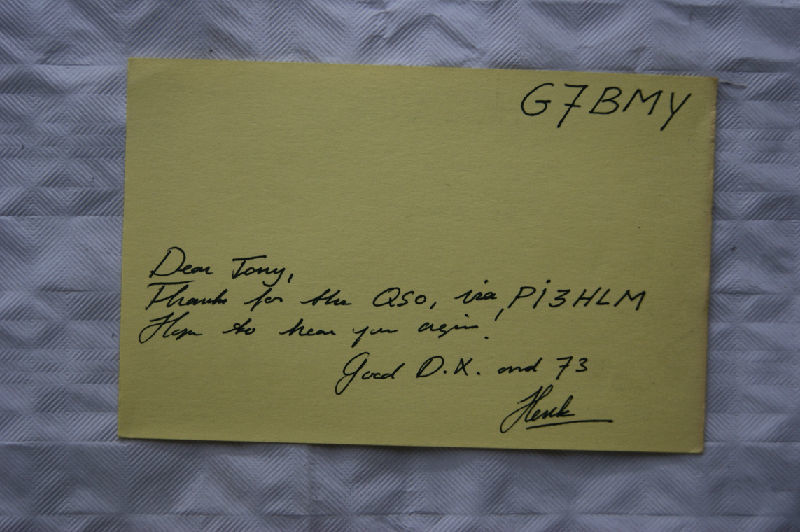 G7BMY
Dear Tony,
Thanks for the QSO, via PI3HLM
Hope to hear you again!
Good D.X. and 73
Henk